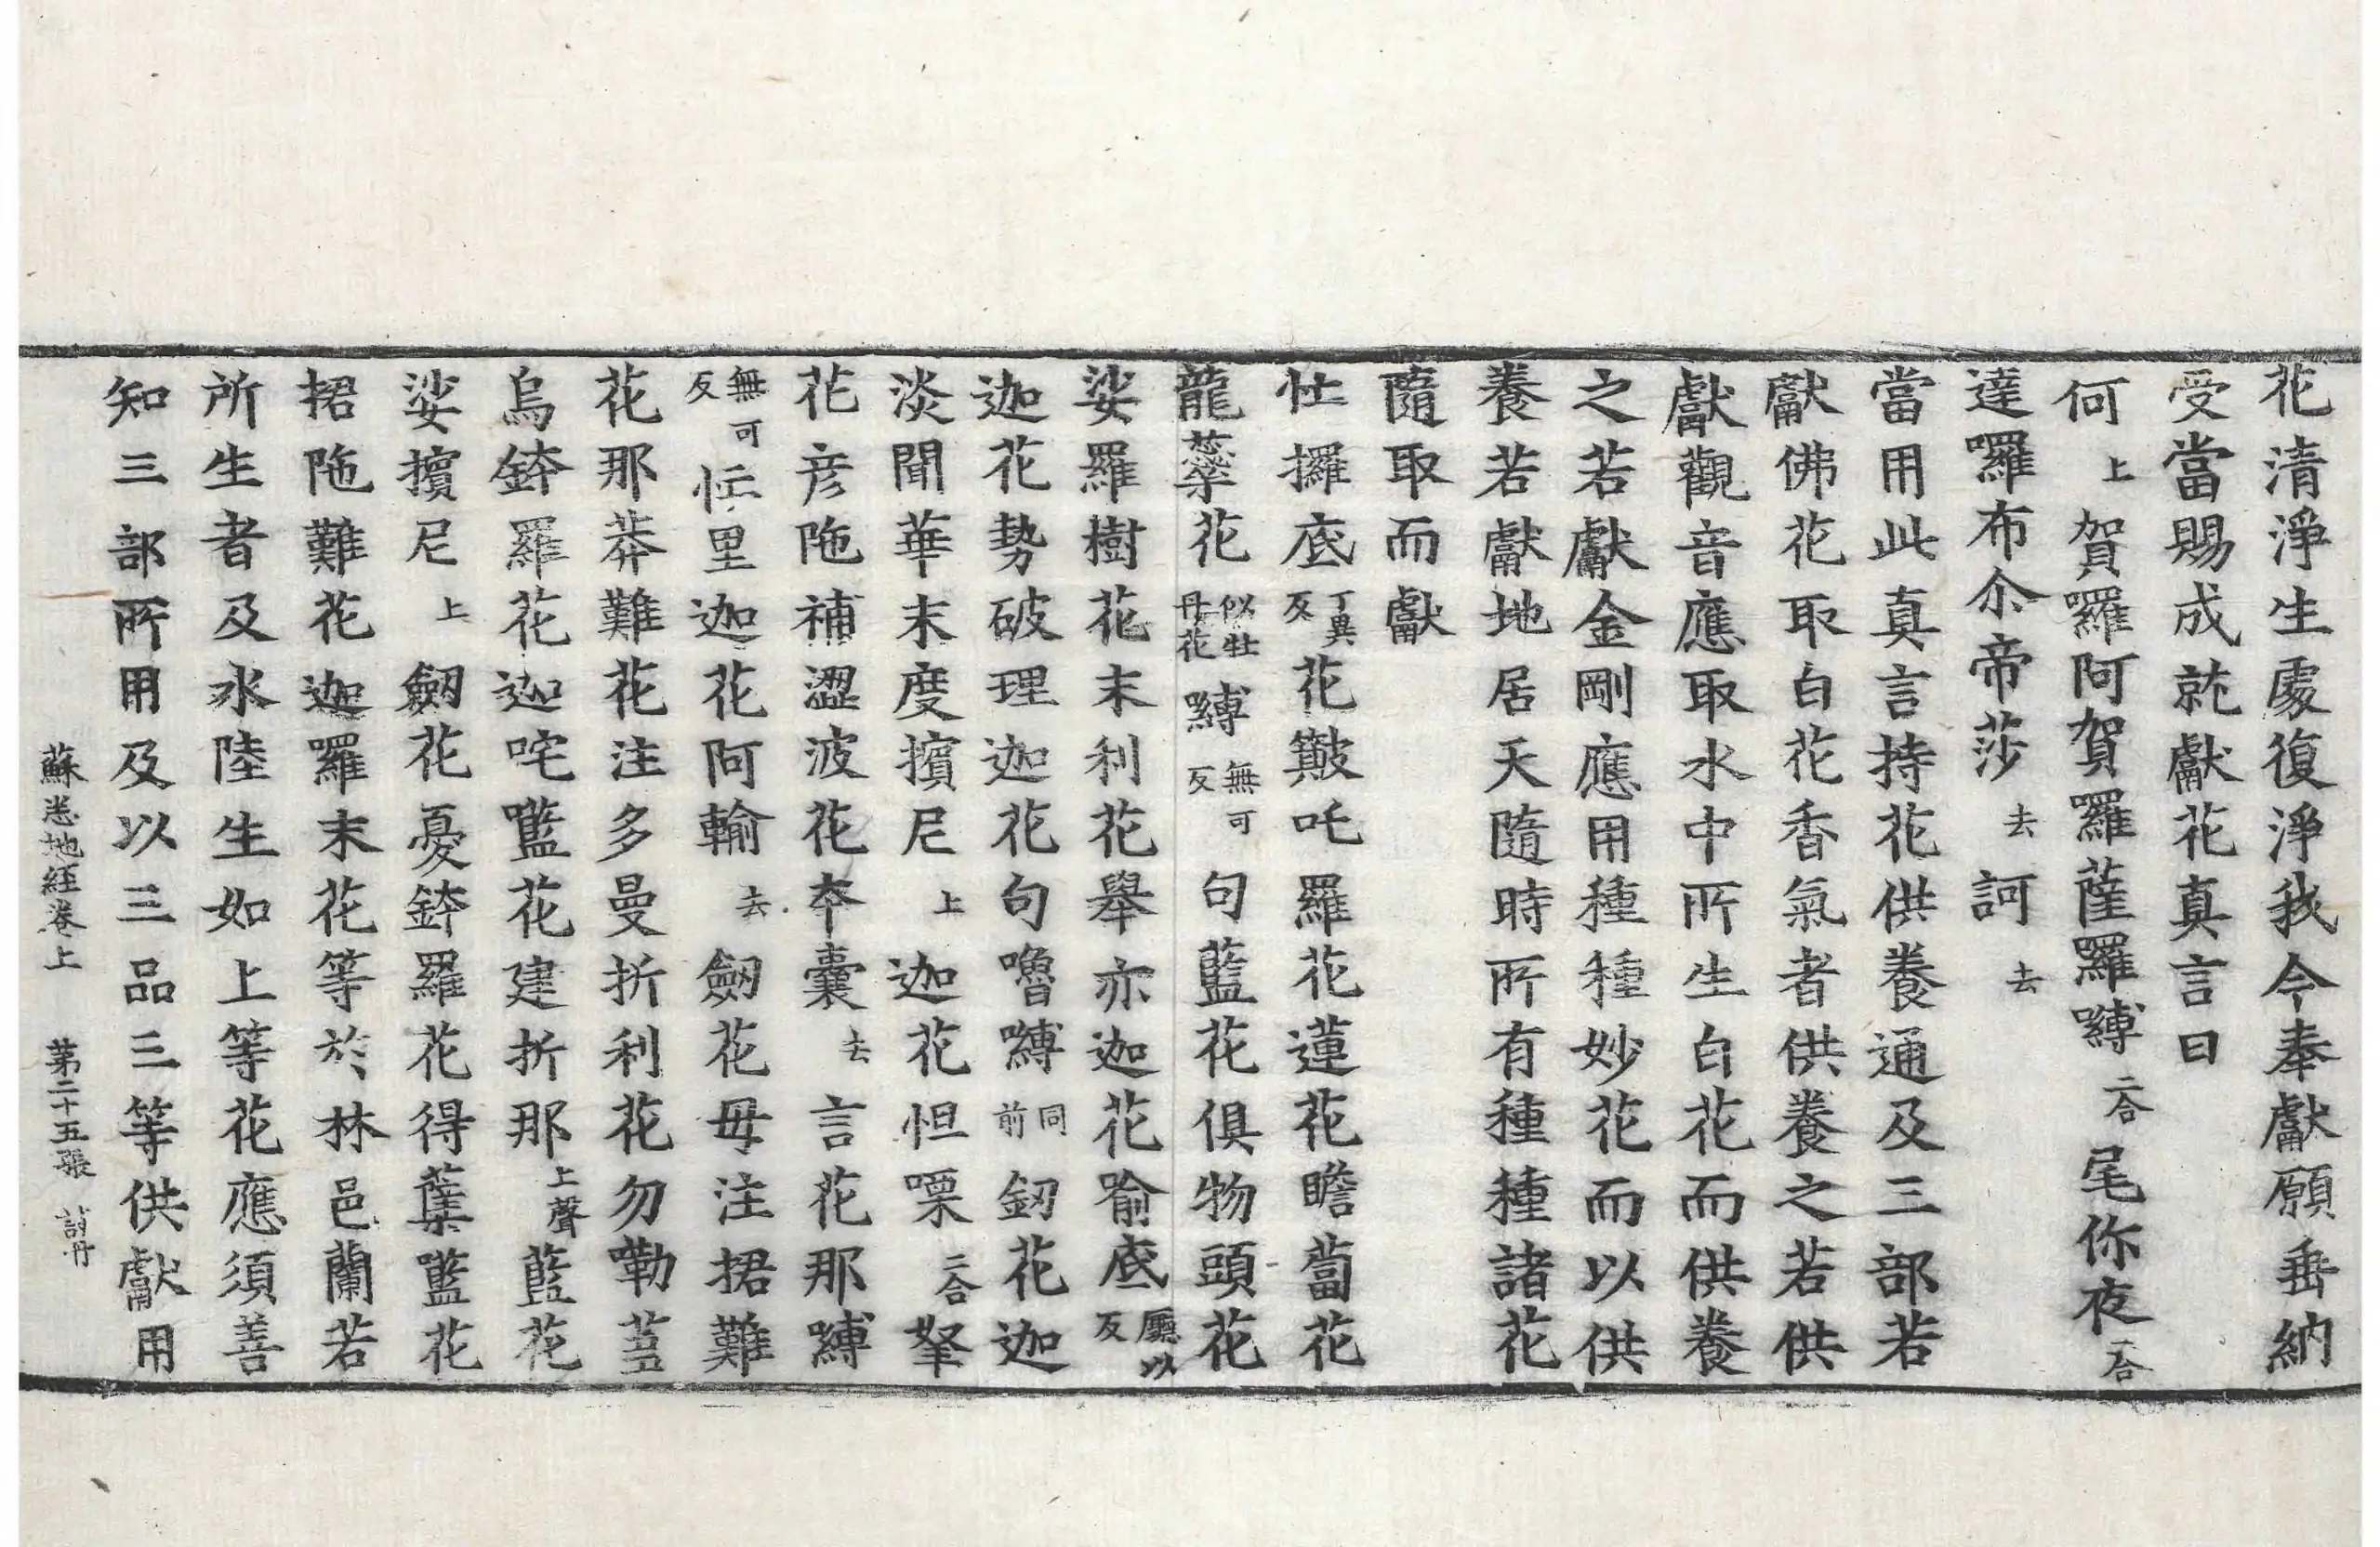 花清淨生處復淨我今奉獻願垂納
受當賜成就獻花真言曰
何上賀囉阿賀羅薩羅嚩二合尾你夜二合
達囉布尒帝莎去訶去
當用此真言持花供養通及三部若
獻佛花取白花香氣者供養之若供
獻觀音應取水中所生白花而供養
之若獻金剛應用種種妙花而以供
養若獻地居天隨時所有種種諸花
隨取而獻
忚攞底丁異反花簸吒羅花蓮花瞻蔔花
龍蘂花似牡丹花嚩無可反句藍花俱物頭花
娑羅樹花末利花舉亦迦花喻底反
迦花勢破理迦花句嚕嚩同前釰花迦
淡聞華末度擯尼上迦花怛㗚二合
花彥陁補澀波花夲囊去言花那嚩
無可反里迦花阿輸去劒花毋注捃難
花那莽難花注多曼折利花勿勒
烏鉢羅花迦咤㘕花建折那上聲藍花
娑擯尼上劒花憂鉢羅花得蘖㘕花
捃陁難花迦囉末花等於林邑蘭若
所生者及水陸生如上等花應須善
知三部所用及以三品三等供獻用
蘇悉地經卷上 第二十五張